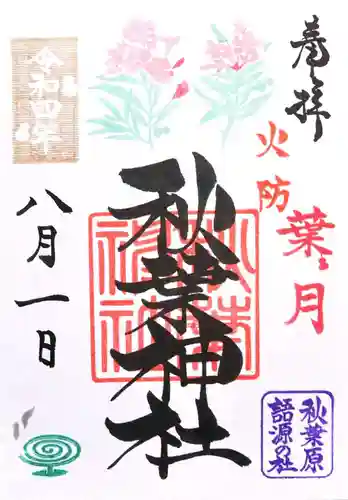 奉拝
火防
葉月
秋葉神社
秋葉神社
秋葉原
語源の社
令和四年
八月一日